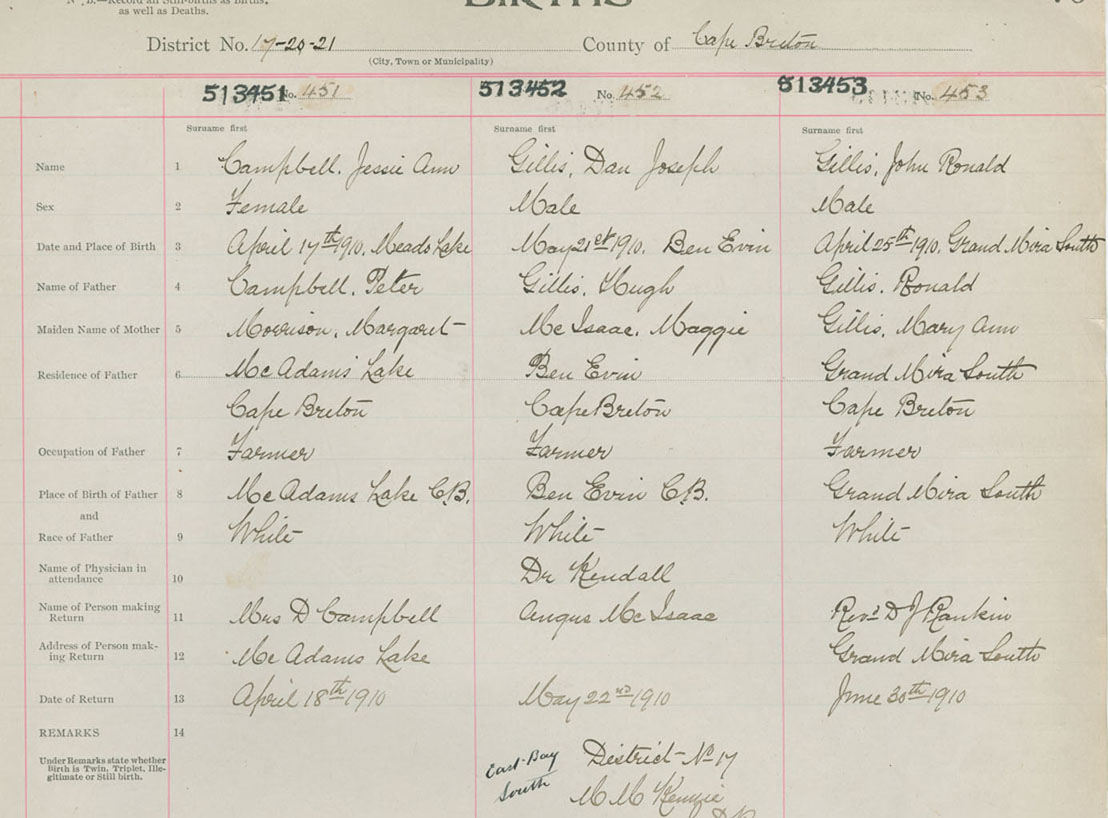 N. B.—Record all Still-births as Births,
as well as Deaths.
BIRTHS
District No. 17-20-21 County of Cape Breton
(City, Town or Municipality)
513451 No. 451 513452 No. 452 513453 No. 453
Surname first Surname first Surname first
Name 1 Campbell, Jessie Ann Gillis, Dan Joseph Gillis, John Ronald
Sex 2 Female Male Male
Date and Place of Birth 3 April 17th 1910, Meads Lake May 21st 1910, Ben Evin April 25th 1910, Grand Mira South
Name of Father 4 Campbell, Peter Gillis, Hugh Gillis, Ronald
Maiden Name of Mother 5 Morrison, Margaret McIsaac, Maggie Gillis, Mary Ann
Residence of Father 6 McAdams Lake Ben Evin Grand Mira South
Cape Breton Cape Breton Cape Breton
Occupation of Father 7 Farmer Farmer Farmer
Place of Birth of Father 8 McAdams Lake C.B. Ben Evin C.B. Grand Mira South
and
Race of Father 9 White White White
Name of Physician in
attendance 10 Dr Kendall
Name of Person making
Return 11 Mrs D Campbell Angus McIsaac Revd D J Rankin
Address of Person mak-
ing Return 12 McAdams Lake Grand Mira South
Date of Return 13 April 18th 1910 May 22nd 1910 June 30th 1910
REMARKS 14
Under Remarks state whether
Birth is Twin, Triplet, Ille-
gitimate or Still birth.
East Bay
South
District No 17
M McKenzie